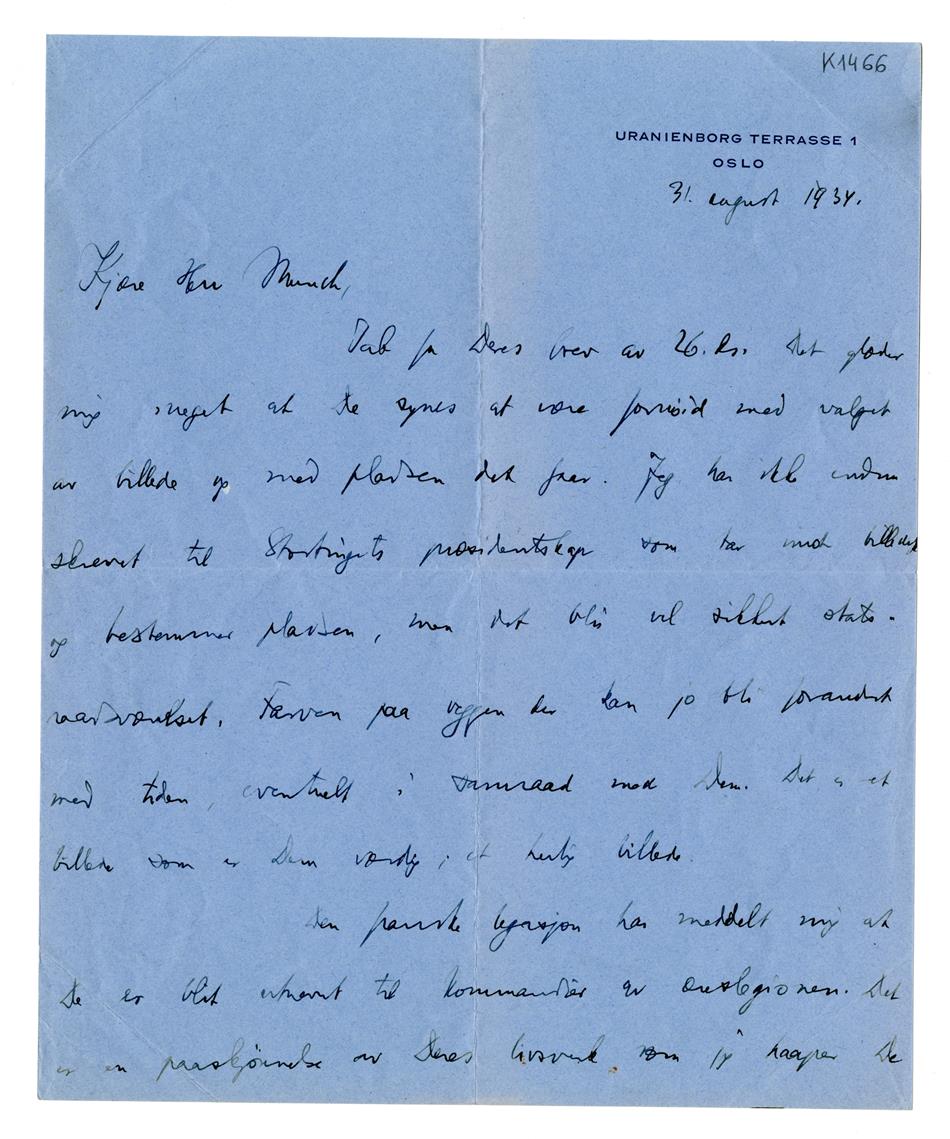 K1466
URANIENBORG TERRASSE 1
OSLO
31. august 1934.
Kjære Herr Munch,
Takk for Deres brev av 26. ds. Det glæder
mig meget at De synes at være fornøid med valget
av billede og med pladsen det faar. Jeg har ikke endnu
skrevet til Stortingets præsidentskap som tar imot billedet
og bestemmer pladsen, men det blir vel sikkert stats-
raadsværelset. Farven paa veggen der kan jo bli forandret
med tiden, eventuelt i samraad med Dem. Det er et
billede som er Dem værdig; et herlig billede.
Den franske legasjon har meddelt mig at
De er blit utnevnt til kommandør av æreslegionen. Det
er en paaskjønnelse av Deres livsverk som jeg haaper De